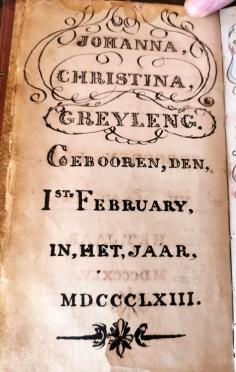 JOHANNA,
CHRISTINA,
GREYLENG.
GEBOOREN, DEN,
1ST. FEBRUARY,
IN, HET, JAAR,
MDCCCLXIII.